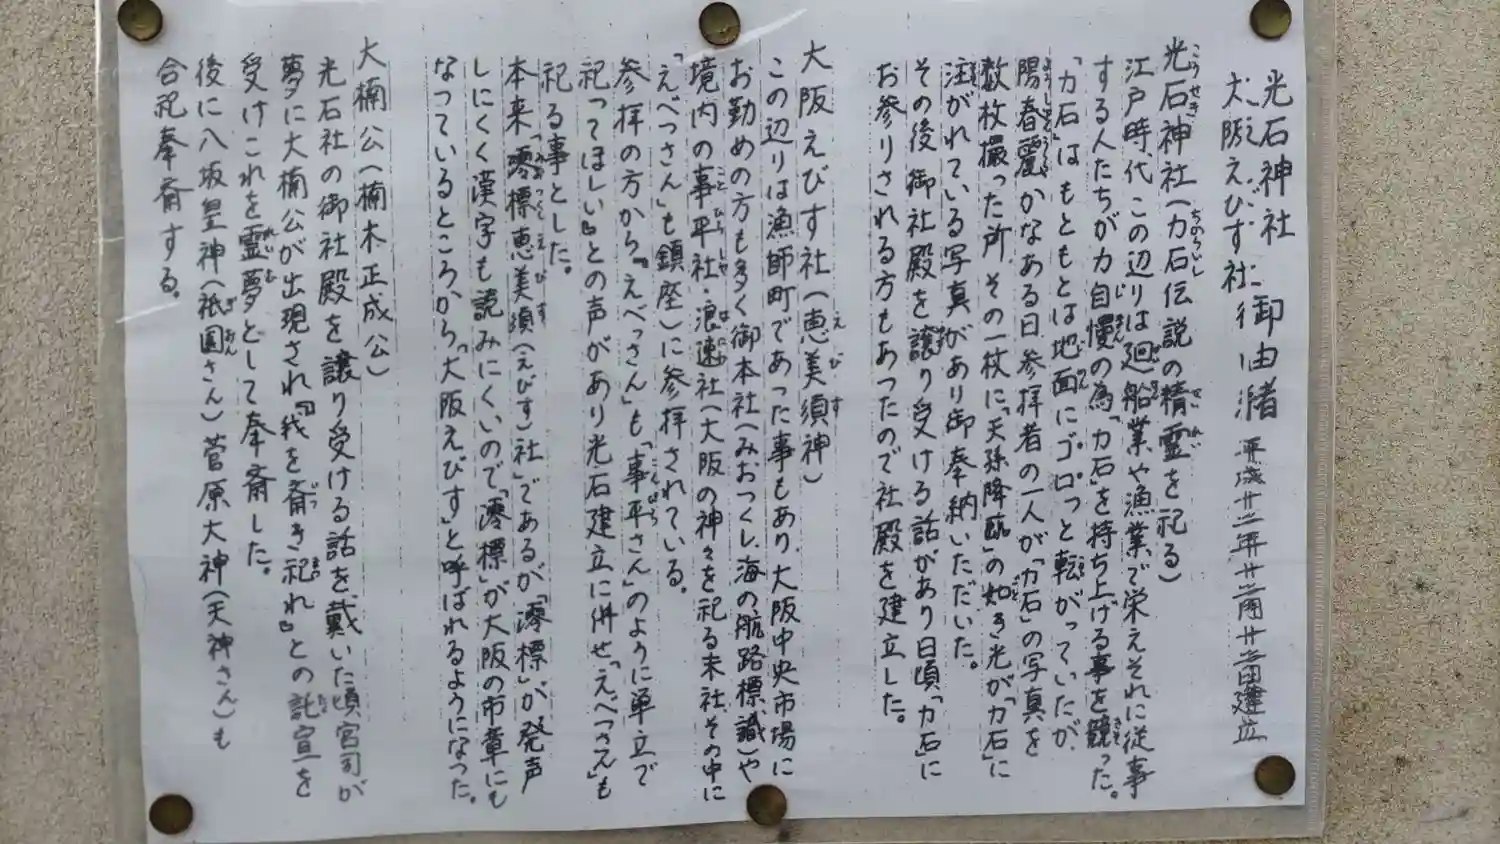 光石神社
大阪えびす社
御由緒 平成廿二年廿二月廿二日建立
光石神社(力石伝説の精霊を祀る)
江戸時代この辺りは廻船業や漁業で栄えそれに従事
する人たちが力自慢の為「力石」を持ち上げる事を競った。
「力石」はもともとは地面にゴロっと転がっていたが、
陽春麗かなある日参拝者の一人が「力石」の写真を
数枚撮った所、その一枚に「天孫降臨」の如き光が「力石」に
注がれている写真があり御奉納いただいた。
その後御社殿を譲り受ける話があり日頃「力石」に
お参りされる方もあったので社殿を建立した。
大阪えびす社(恵美須神)
この辺りは漁師町であった事もあり、大阪中央市場に
お勤めの方も多く御本社(みおつくし海の航路標識)や
境内の事平社・浪速社(大阪の神々を祀る末社その中に
「えべっさん」も鎮座)に参拝されている。
参拝の方から『えべっさん」も「事平さん」のように単立で
祀ってほしい』との声があり光石建立に併せ「えべっさん」も
祀る事とした。
本来「澪標恵美須(えびす)社」であるが「澪標」が発声
しにくく漢字も読みにくいので「澪標」が大阪の市章にも
なっているところから「大阪えびす」と呼ばれるようになった。
大楠公(楠木正成公)
光石社の御社殿を譲り受ける話を戴いた頃宮司が
夢に大楠公が出現され『我を斎き祀れ』との託宣を
受けこれを霊夢として奉斎した。
後に八坂皇神(祇園さん)菅原大神(天神さん)も
合祀奉斎する。